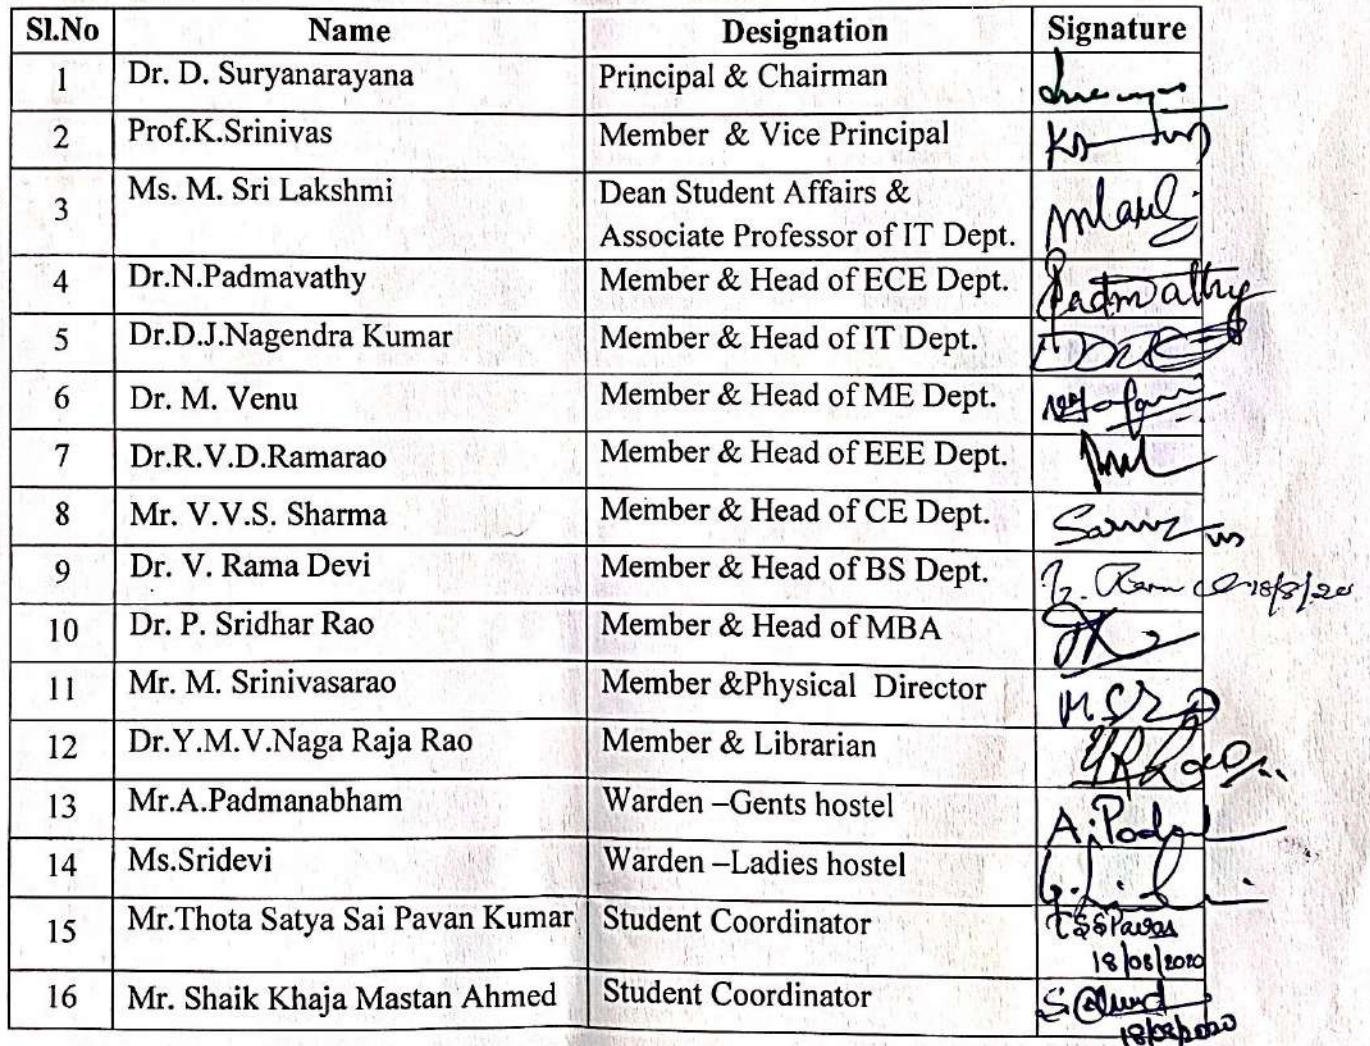 Sl.No Name Designation Signature
1 Dr. D. Suryanarayana Principal & Chairman
2 Prof.K.Srinivas Member & Vice Principal
3 Ms. M. Sri Lakshmi Dean Student Affairs &
Associate Professor of IT Dept.
4 Dr.N.Padmavathy Member & Head of ECE Dept. Padmavathy
5 Dr.D.J.Nagendra Kumar Member & Head of IT Dept.
6 Dr. M. Venu Member & Head of ME Dept.
7 Dr.R.V.D.Ramarao Member & Head of EEE Dept.
8 Mr. V.V.S. Sharma Member & Head of CE Dept.
9 Dr. V. Rama Devi Member & Head of BS Dept. 18/8/20
10 Dr. P. Sridhar Rao Member & Head of MBA
11 Mr. M. Srinivasarao Member &Physical Director
12 Dr.Y.M.V.Naga Raja Rao Member & Librarian
13 Mr.A.Padmanabham Warden –Gents hostel
14 Ms.Sridevi Warden –Ladies hostel
15 Mr.Thota Satya Sai Pavan Kumar Student Coordinator
18/08/2020
16 Mr. Shaik Khaja Mastan Ahmed Student Coordinator
18/08/2020